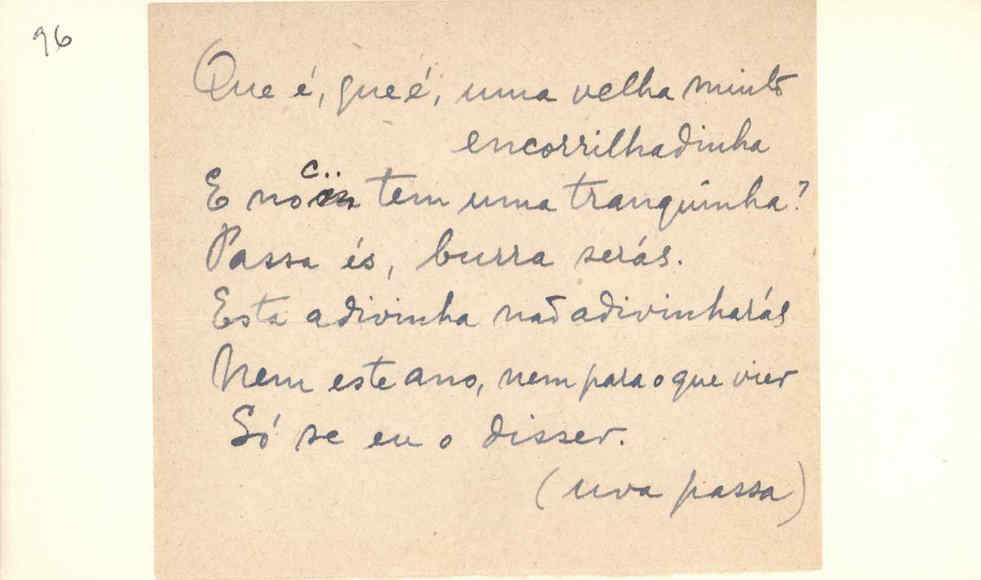 96
Que é, que é, uma velha muito
encorrilhadinha
E no c.. tem uma tranquinha?
Passa és, burra serás.
Esta adivinha não adivinharás
Nem este ano, nem para o que vier
Só se eu o disser.
(uva passa)